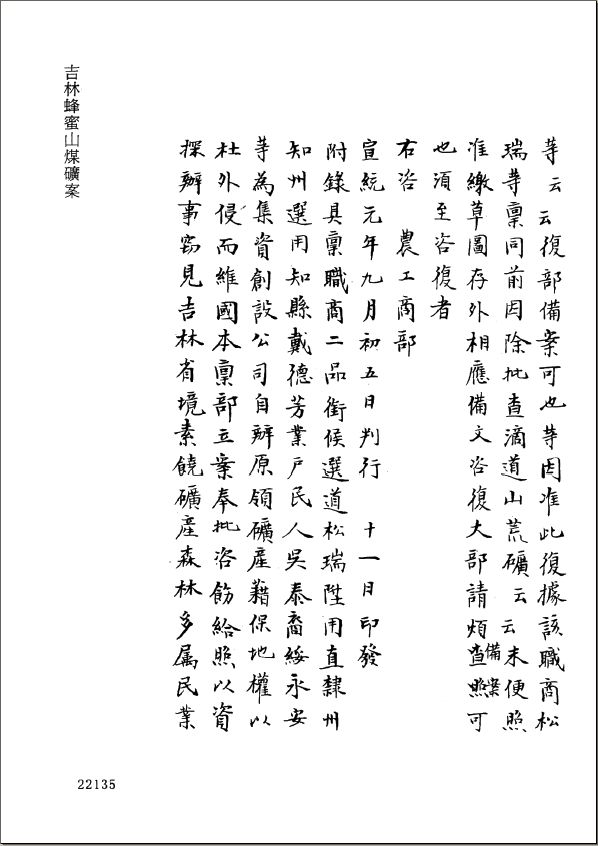 等云云復部備案可也等因准此復據該職商松
瑞等稟同前因除批查滴道山荒礦云云未便照
准繳草圖存外相應備文咨復大部請煩查照備案可
也須至咨復者
右咨 農工商部
宣統元年九月初五日判行 十一日印發
附錄具稟職商二品銜候選道松瑞陞用直隸州
知州選用知縣戴德芳業戶民人吳泰裔綏永安
等為集資創設公司自辦原領礦產藉保地權以
杜外侵而維國本稟部立案奉批咨飭給照以資
探辦事竊見吉林省境素饒礦產森林多属民業
吉林蜂蜜山煤礦案
22135